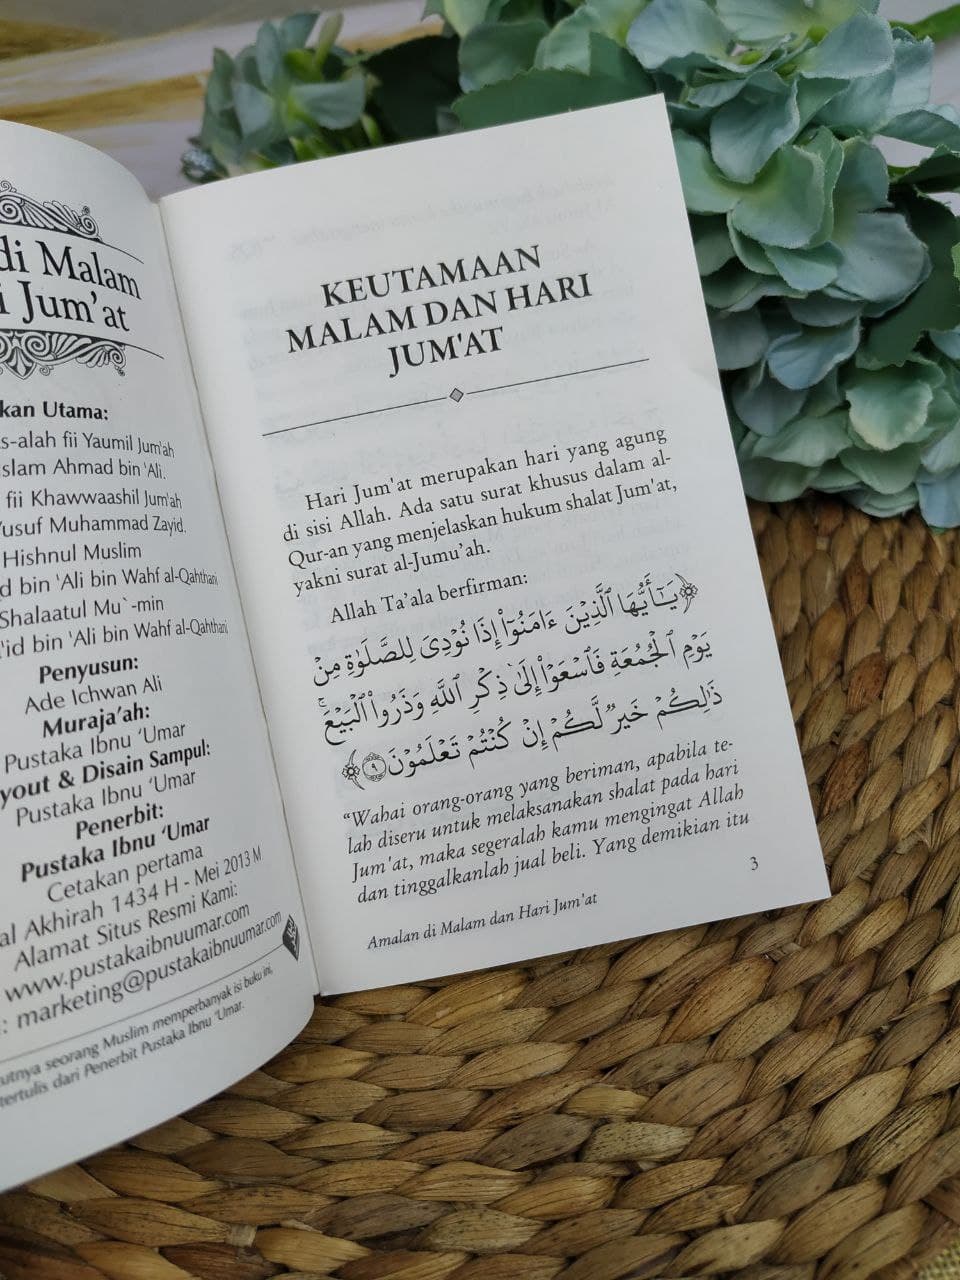 di Malam
i Jum'at
kan Utama:
s-alah fii Yaumil Jum'ah
slam Ahmad bin 'Ali.
fii Khawwaashil Jum'ah
Yusuf Muhammad Zayid.
Hishnul Muslim
d bin 'Ali bin Wahf al-Qahthani
Shalaatul Mu`-min
'id bin 'Ali bin Wahf al-Qahthani
Penyusun:
Ade Ichwan Ali
Muraja'ah:
Pustaka Ibnu 'Umar
yout & Disain Sampul:
Pustaka Ibnu 'Umar
Penerbit:
Pustaka Ibnu 'Umar
Cetakan pertama
al Akhirah 1434 H - Mei 2013 M
Alamat Situs Resmi Kami:
www.pustakaibnuumar.com
: marketing@pustakaibnuumar.com
utnya seorang Muslim memperbanyak isi buku ini,
tertulis dari Penerbit Pustaka Ibnu 'Umar.
KEUTAMAAN
MALAM DAN HARI
JUM'AT
Hari Jum'at merupakan hari yang agung
di sisi Allah. Ada satu surat khusus dalam al-
Qur-an yang menjelaskan hukum shalat Jum'at,
yakni surat al-Jumu'ah.
Allah Ta'ala berfirman:
يَـٰٓأَيُّهَا ٱلَّذِينَ ءَامَنُوٓا۟ إِذَا نُودِىَ لِلصَّلَوٰةِ مِن
يَوْمِ ٱلْجُمُعَةِ فَٱسْعَوْا۟ إِلَىٰ ذِكْرِ ٱللَّهِ وَذَرُوا۟ ٱلْبَيْعَ ۚ
ذَٰلِكُمْ خَيْرٌ لَّكُمْ إِن كُنتُمْ تَعْلَمُونَ ٩
“Wahai orang-orang yang beriman, apabila te-
lah diseru untuk melaksanakan shalat pada hari
Jum'at, maka segeralah kamu mengingat Allah
dan tinggalkanlah jual beli. Yang demikian itu
3
Amalan di Malam dan Hari Jum'at